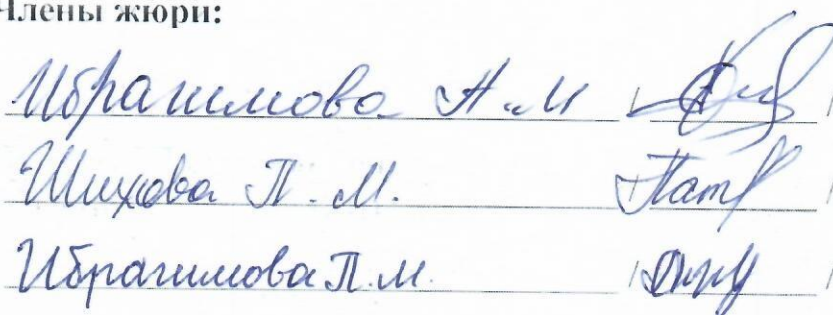 Члены жюри:
Ибрагимова А.М / /
Шихова П.М. / /
Ибрагимова П.М. / /